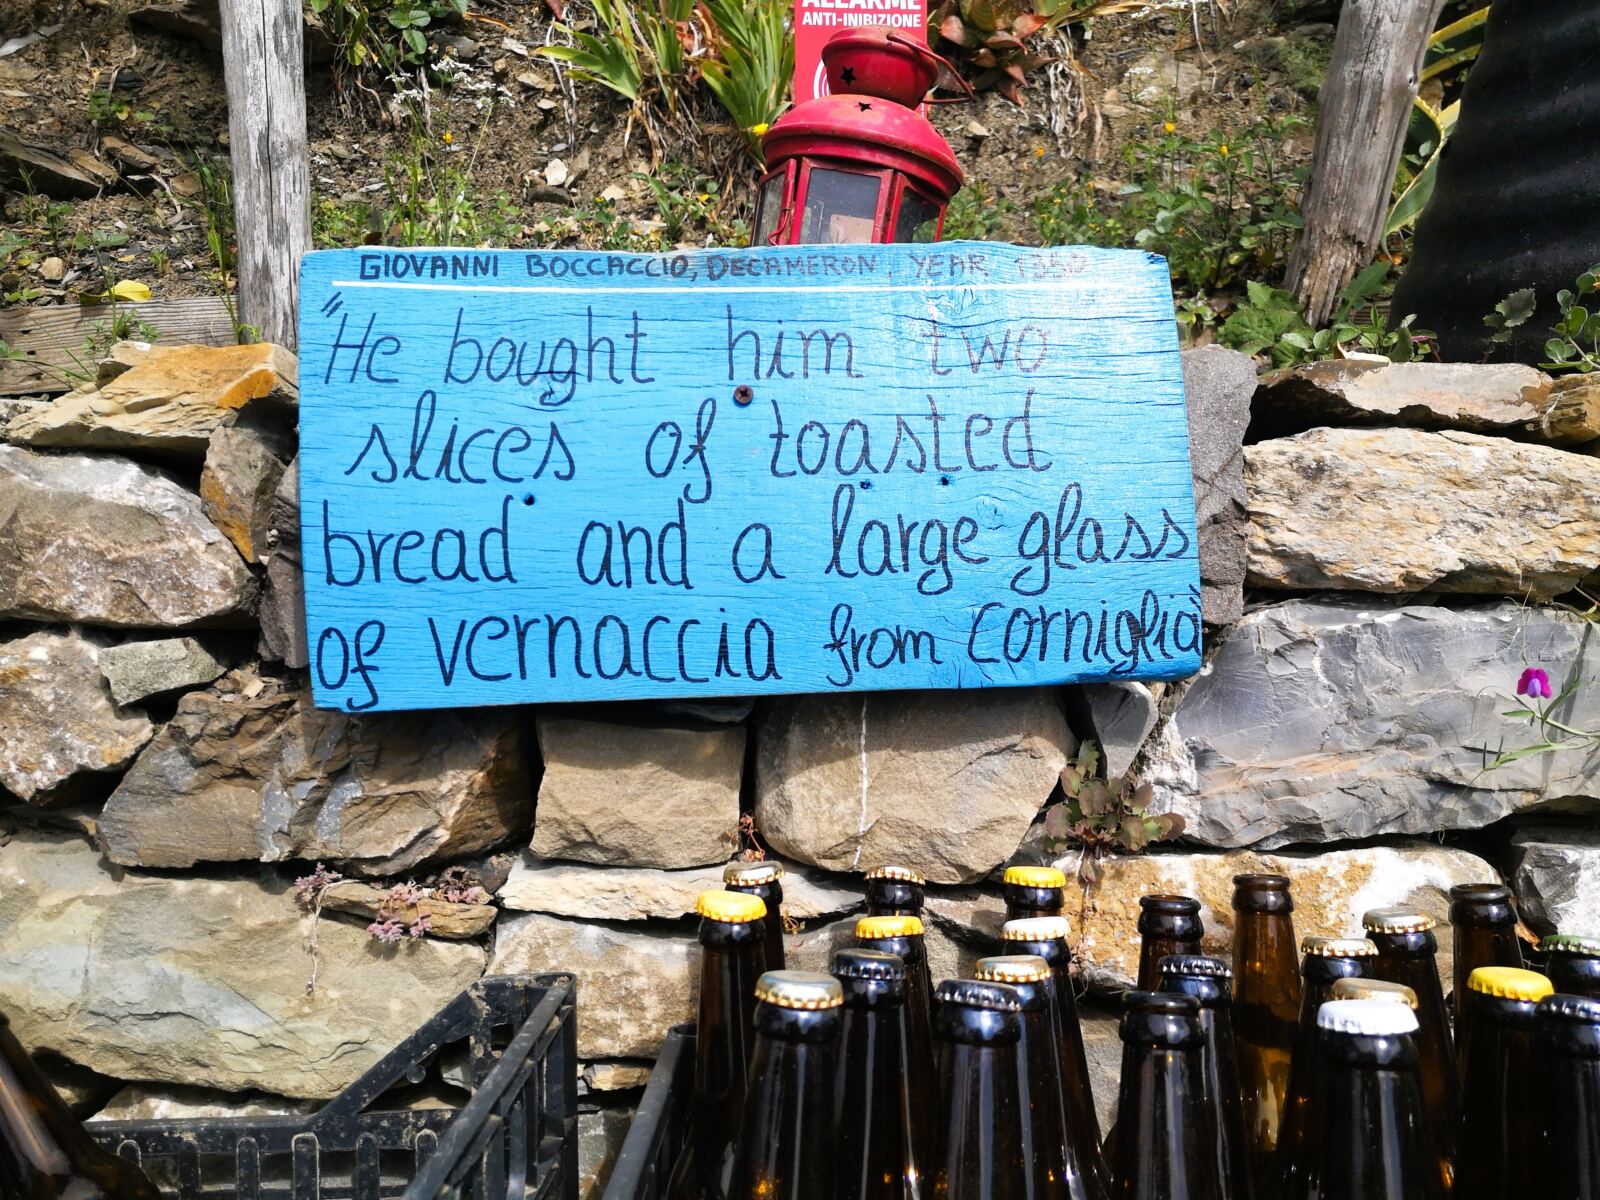 ALLARME
ANTI-INIBIZIONE
GIOVANNI BOCCACCIO, DECAMERON, YEAR 1350
"He bought him two
slices of toasted
bread and a large glass
of vernaccia from corniglia"